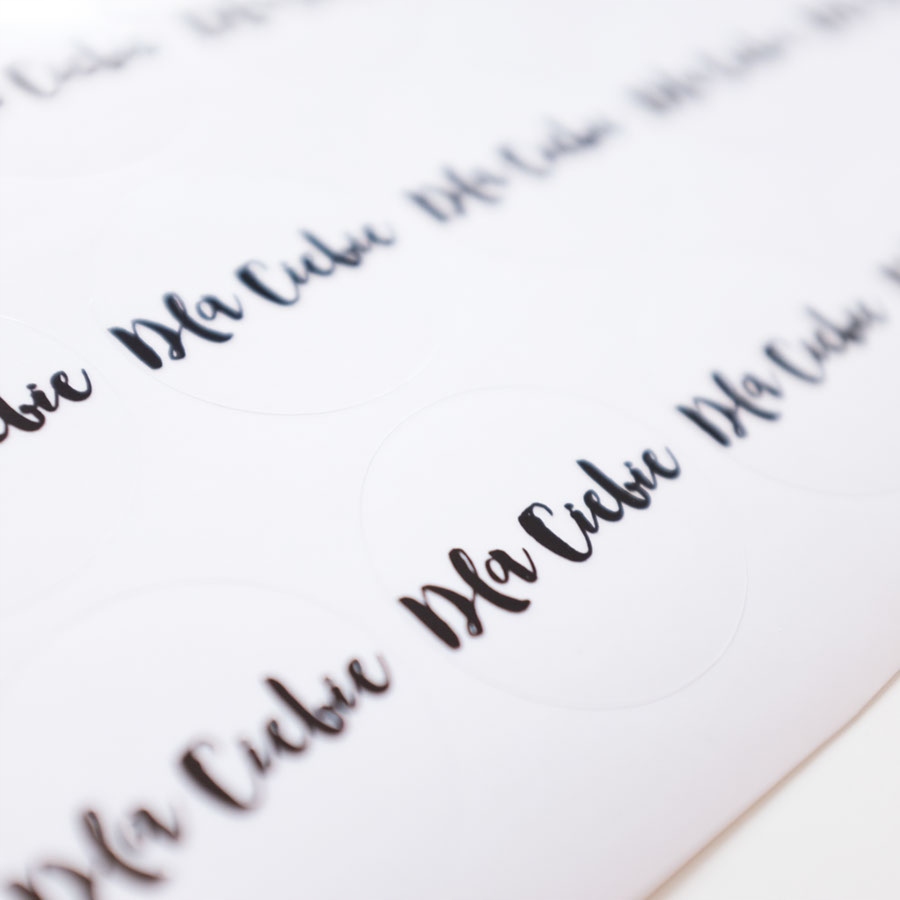 Dla Ciebie
Dla Ciebie
Dla Ciebie
Dla Ciebie
ebie
Dla Ciebie
Dla Ciebie
Dla Ciebie